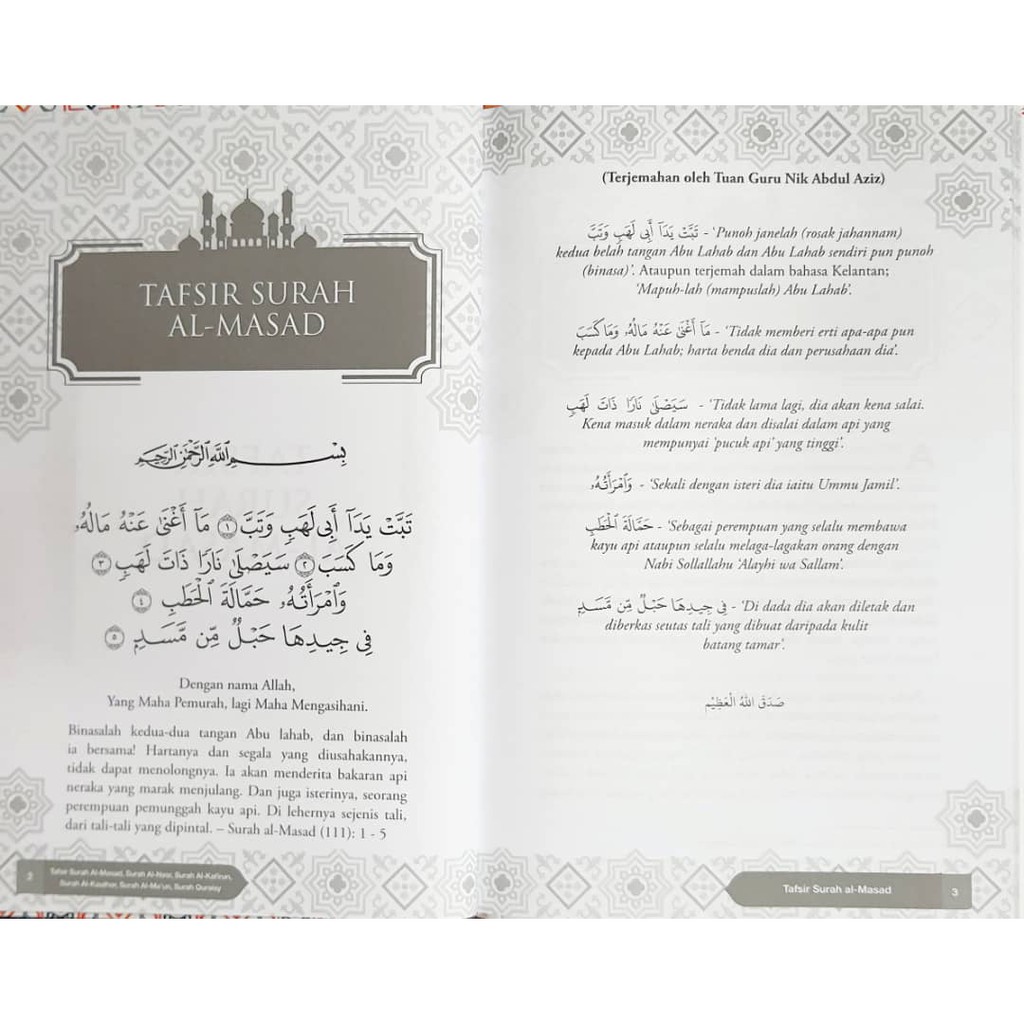 TAFSIR SURAH
AL-MASAD
بِسْمِ اللَّهِ الرَّحْمَٰنِ الرَّحِيمِ
تَبَّتْ يَدَآ أَبِى لَهَبٍ وَتَبَّ ١ مَآ أَغْنَىٰ عَنْهُ مَالُهُۥ
وَمَا كَسَبَ ٢ سَيَصْلَىٰ نَارًا ذَاتَ لَهَبٍ ٣
وَٱمْرَأَتُهُۥ حَمَّالَةَ ٱلْحَطَبِ ٤
فِى جِيدِهَا حَبْلٌ مِّن مَّسَدٍۭ ٥
Dengan nama Allah,
Yang Maha Pemurah, lagi Maha Mengasihani.
Binasalah kedua-dua tangan Abu lahab, dan binasalah
ia bersama! Hartanya dan segala yang diusahakannya,
tidak dapat menolongnya. Ia akan menderita bakaran api
neraka yang marak menjulang. Dan juga isterinya, seorang
perempuan pemunggah kayu api. Di lehernya sejenis tali,
dari tali-tali yang dipintal. – Surah al-Masad (111): 1 - 5
2
Tafsir Surah Al-Masad, Surah Al-Nasr, Surah Al-Kafirun,
Surah Al-Kauthar, Surah Al-Ma'un, Surah Quraisy
(Terjemahan oleh Tuan Guru Nik Abdul Aziz)
تَبَّتْ يَدَآ أَبِى لَهَبٍ وَتَبَّ - 'Punoh janelah (rosak jahannam)
kedua belah tangan Abu Lahab dan Abu Lahab sendiri pun punoh
(binasa)'. Ataupun terjemah dalam bahasa Kelantan;
'Mapuh-lah (mampuslah) Abu Lahab'.
مَآ أَغْنَىٰ عَنْهُ مَالُهُۥ وَمَا كَسَبَ - 'Tidak memberi erti apa-apa pun
kepada Abu Lahab; harta benda dia dan perusahaan dia'.
سَيَصْلَىٰ نَارًا ذَاتَ لَهَبٍ - 'Tidak lama lagi, dia akan kena salai.
Kena masuk dalam neraka dan disalai dalam api yang
mempunyai 'pucuk api' yang tinggi'.
وَٱمْرَأَتُهُۥ - 'Sekali dengan isteri dia iaitu Ummu Jamil'.
حَمَّالَةَ ٱلْحَطَبِ - 'Sebagai perempuan yang selalu membawa
kayu api ataupun selalu melaga-lagakan orang dengan
Nabi Sollallahu 'Alayhi wa Sallam'.
فِى جِيدِهَا حَبْلٌ مِّن مَّسَدٍۭ - 'Di dada dia akan diletak dan
diberkas seutas tali yang dibuat daripada kulit
batang tamar'.
صَدَقَ اللهُ الْعَظِيْم
Tafsir Surah al-Masad
3